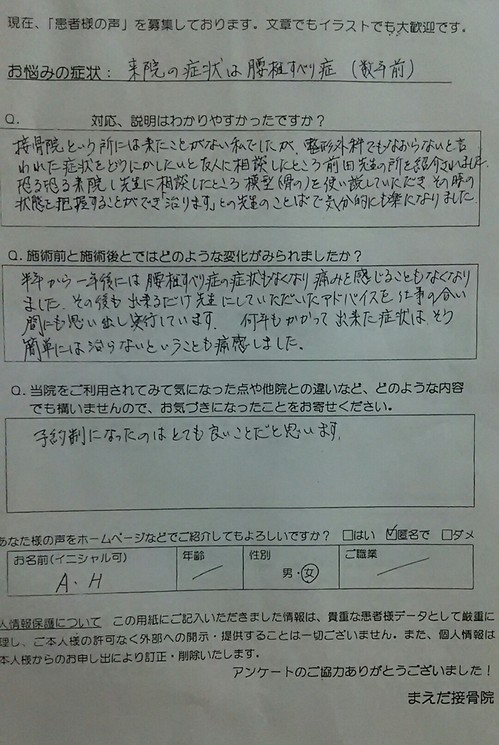 現在、「患者様の声」を募集しております。文章でもイラストでも大歓迎です。
お悩みの症状: 来院の症状は腰椎すべり症 (数年前)
Q. 対応、説明はわかりやすかったですか?
接骨院という所には来たことがない私でしたが、整形外科でもなおらないと言
われた症状をどうにかしたいと友人に相談したところ前田先生の所を紹介されました。
恐る恐る来院し先生に相談したところ模型(骨の)を使い説していただき その時の
状態を把握することができ「治ります」との先生のことばで気分的にも楽になりました。
Q. 施術前と施術後とではどのような変化がみられましたか?
半年から一年後には腰椎すべり症の症状もなくなり痛みを感じることもなくなり
ました。その後も出来るだけ先生にしていただいたアドバイスを仕事の合い
間にも思い出し実行しています。 何年もかかって出来た症状は、そう
簡単には治らないということも痛感しました。
Q. 当院をご利用されてみて気になった点や他院との違いなど、どのような内容
でも構いませんので、お気づきになったことをお寄せください。
予約制になったのはとても良いことだと思います。
あなた様の声をホームページなどでご紹介してもよろしいですか? □はい ☑匿名で □ダメ
お名前(イニシャル可) 年齢 性別 ご職業
A.H ／ 男・女 ／
人情報保護について この用紙にご記入いただきました情報は、貴重な患者様データとして厳重に
理し、ご本人様の許可なく外部への開示・提供することは一切ございません。また、個人情報は
本人様からのお申し出により訂正・削除いたします。
アンケートのご協力ありがとうございました!
まえだ接骨院